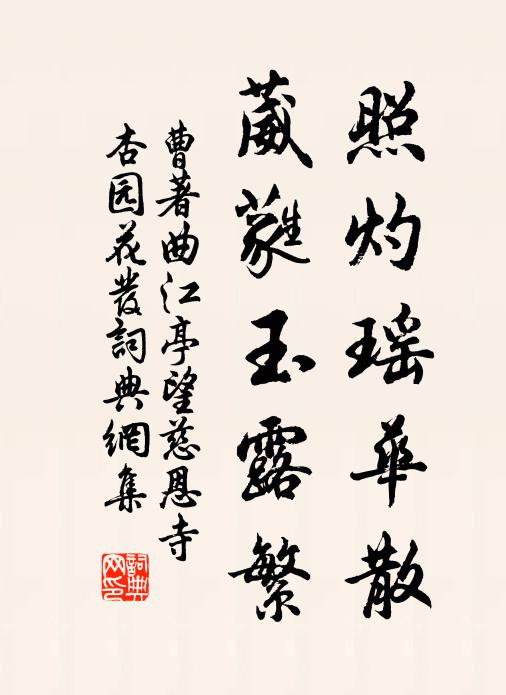 照灼瑶华散
葳蕤玉露繁
曹著曲江亭望慈恩寺
杏园花发詞典網集
詞典
网印